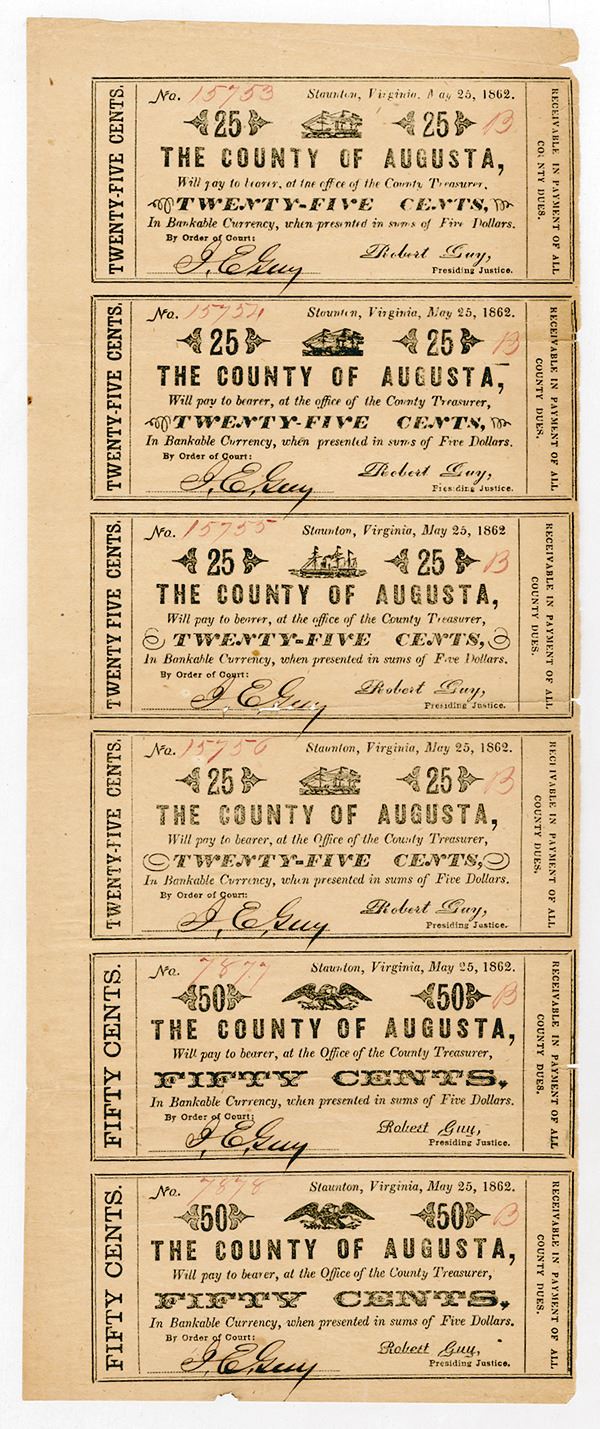 TWENTY-FIVE CENTS.
No. 15753 Staunton, Virginia, May 25, 1862.
25 25 B
THE COUNTY OF AUGUSTA,
Will pay to bearer, at the office of the County Treasurer,
TWENTY-FIVE CENTS,
In Bankable Currency, when presented in sums of Five Dollars.
By Order of Court:
J. E. Guy Robert Guy,
Presiding Justice.
RECEIVABLE IN PAYMENT OF ALL
COUNTY DUES.
TWENTY-FIVE CENTS.
No. 15754 Staunton, Virginia, May 25, 1862.
25 25 B
THE COUNTY OF AUGUSTA,
Will pay to bearer, at the office of the County Treasurer,
TWENTY-FIVE CENTS,
In Bankable Currency, when presented in sums of Five Dollars.
By Order of Court:
J. E. Guy Robert Guy,
Presiding Justice.
RECEIVABLE IN PAYMENT OF ALL
COUNTY DUES.
TWENTY FIVE CENTS.
No. 15755 Staunton, Virginia, May 25, 1862
25 25 B
THE COUNTY OF AUGUSTA,
Will pay to bearer, at the office of the County Treasurer,
TWENTY-FIVE CENTS,
In Bankable Currency, when presented in sums of Five Dollars.
By Order of Court:
J. E. Guy Robert Guy,
Presiding Justice.
RECEIVABLE IN PAYMENT OF ALL
COUNTY DUES.
TWENTY-FIVE CENTS.
No. 15756 Staunton, Virginia, May 25, 1862.
25 25 B
THE COUNTY OF AUGUSTA,
Will pay to bearer, at the Office of the County Treasurer,
TWENTY-FIVE CENTS,
In Bankable Currency, when presented in sums of Five Dollars.
By Order of Court:
J. E. Guy Robert Guy,
Presiding Justice.
RECEIVABLE IN PAYMENT OF ALL
COUNTY DUES.
FIFTY CENTS.
No. 7877 Staunton, Virginia, May 25, 1862.
50 50 B
THE COUNTY OF AUGUSTA,
Will pay to bearer, at the Office of the County Treasurer,
FIFTY CENTS,
In Bankable Currency, when presented in sums of Five Dollars.
By Order of Court:
J. E. Guy Robert Guy,
Presiding Justice.
RECEIVABLE IN PAYMENT OF ALL
COUNTY DUES.
FIFTY CENTS.
No. 7878 Staunton, Virginia, May 25, 1862.
50 50 B
THE COUNTY OF AUGUSTA,
Will pay to bearer, at the Office of the County Treasurer,
FIFTY CENTS,
In Bankable Currency, when presented in sums of Five Dollars.
By Order of Court:
J. E. Guy Robert Guy,
Presiding Justice.
RECEIVABLE IN PAYMENT OF ALL
COUNTY DUES.